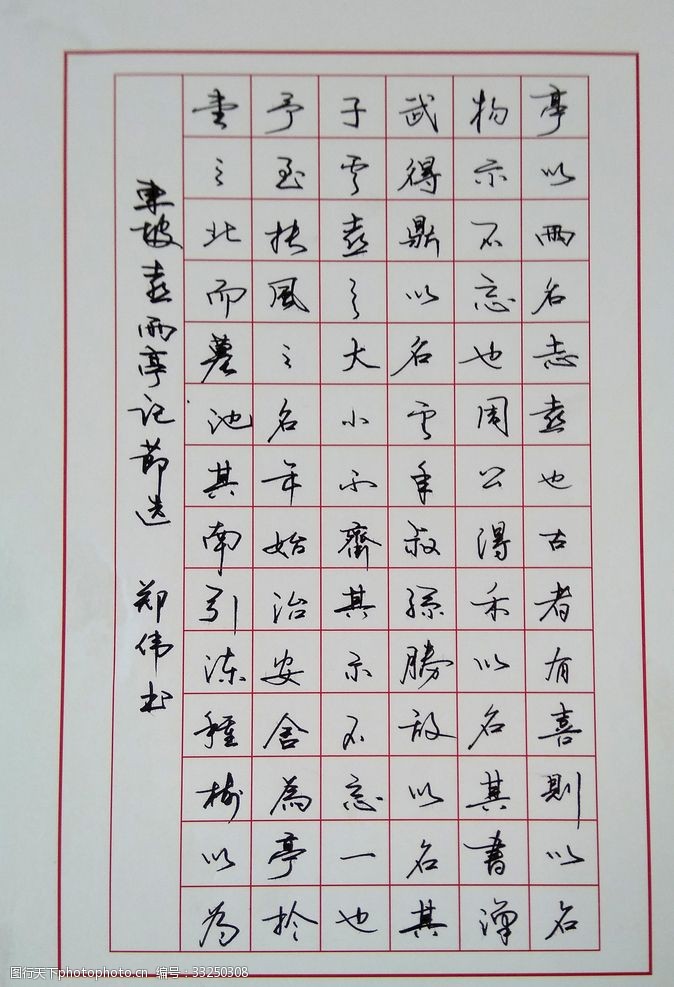 亭以雨名志喜也古者有喜則以名
物示不忘也周公得禾以名其書漢
武得鼎以名其年叔孫勝敵以名其
子其喜之大小不齊其示不忘一也
予至扶風之名年始治安舍為亭於
堂之北而鑿池其南引流種樹以為
東坡喜雨亭记節选 郑伟书
图行天下photophoto.cn 编号:33250308